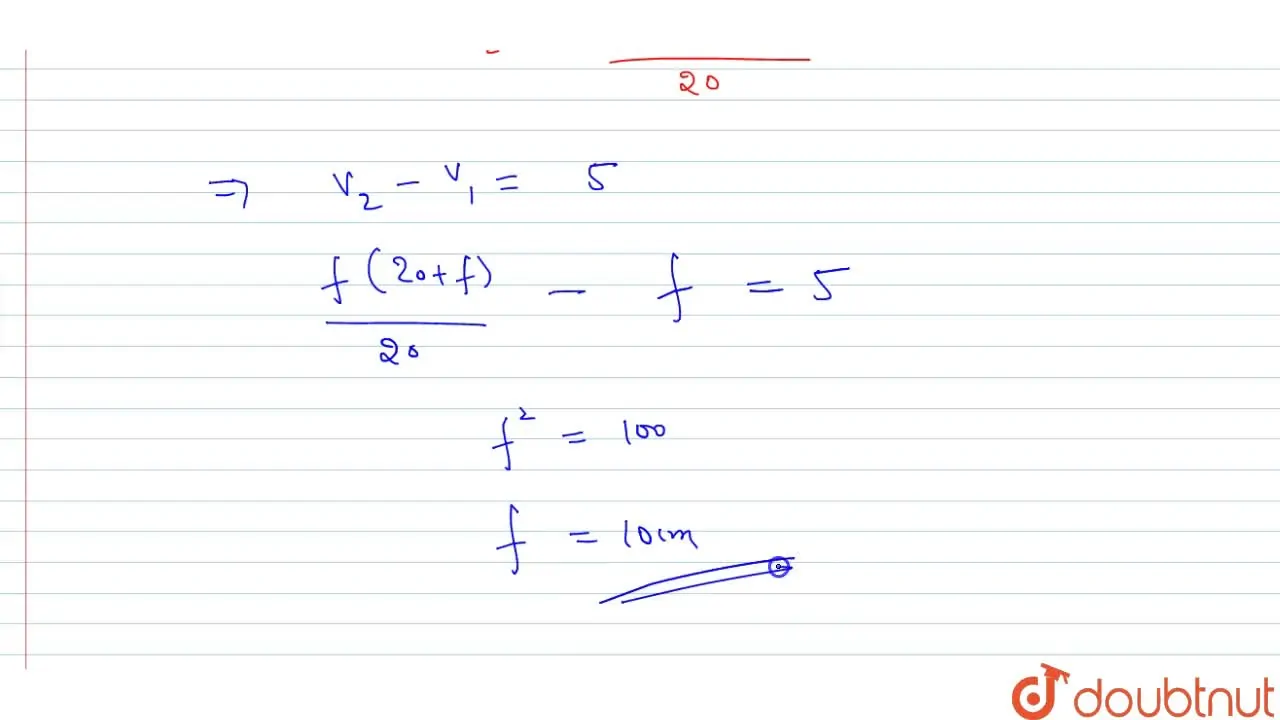 20
⇒ v₂ - v₁ = 5
f(20+f)/20 - f = 5
f² = 100
f = 10cm
doubtnut